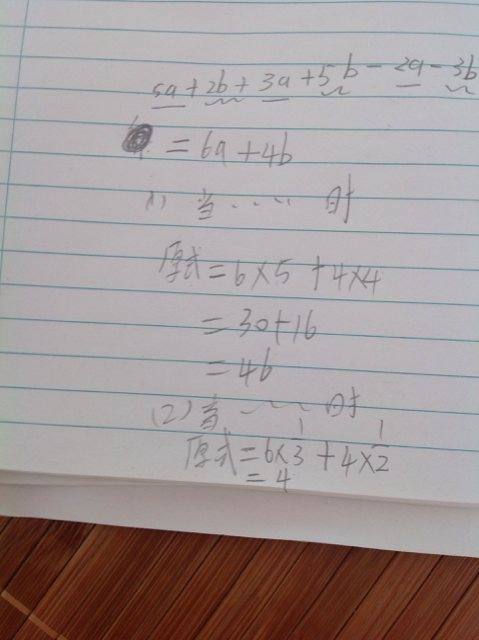 5a+2b+3a+5b-2a-3b
=6a+4b
(1) 当…… 时
原式=6×5+4×4
=30+16
=46
(2) 当…… 时
原式=6×1/3+4×1/2
=4